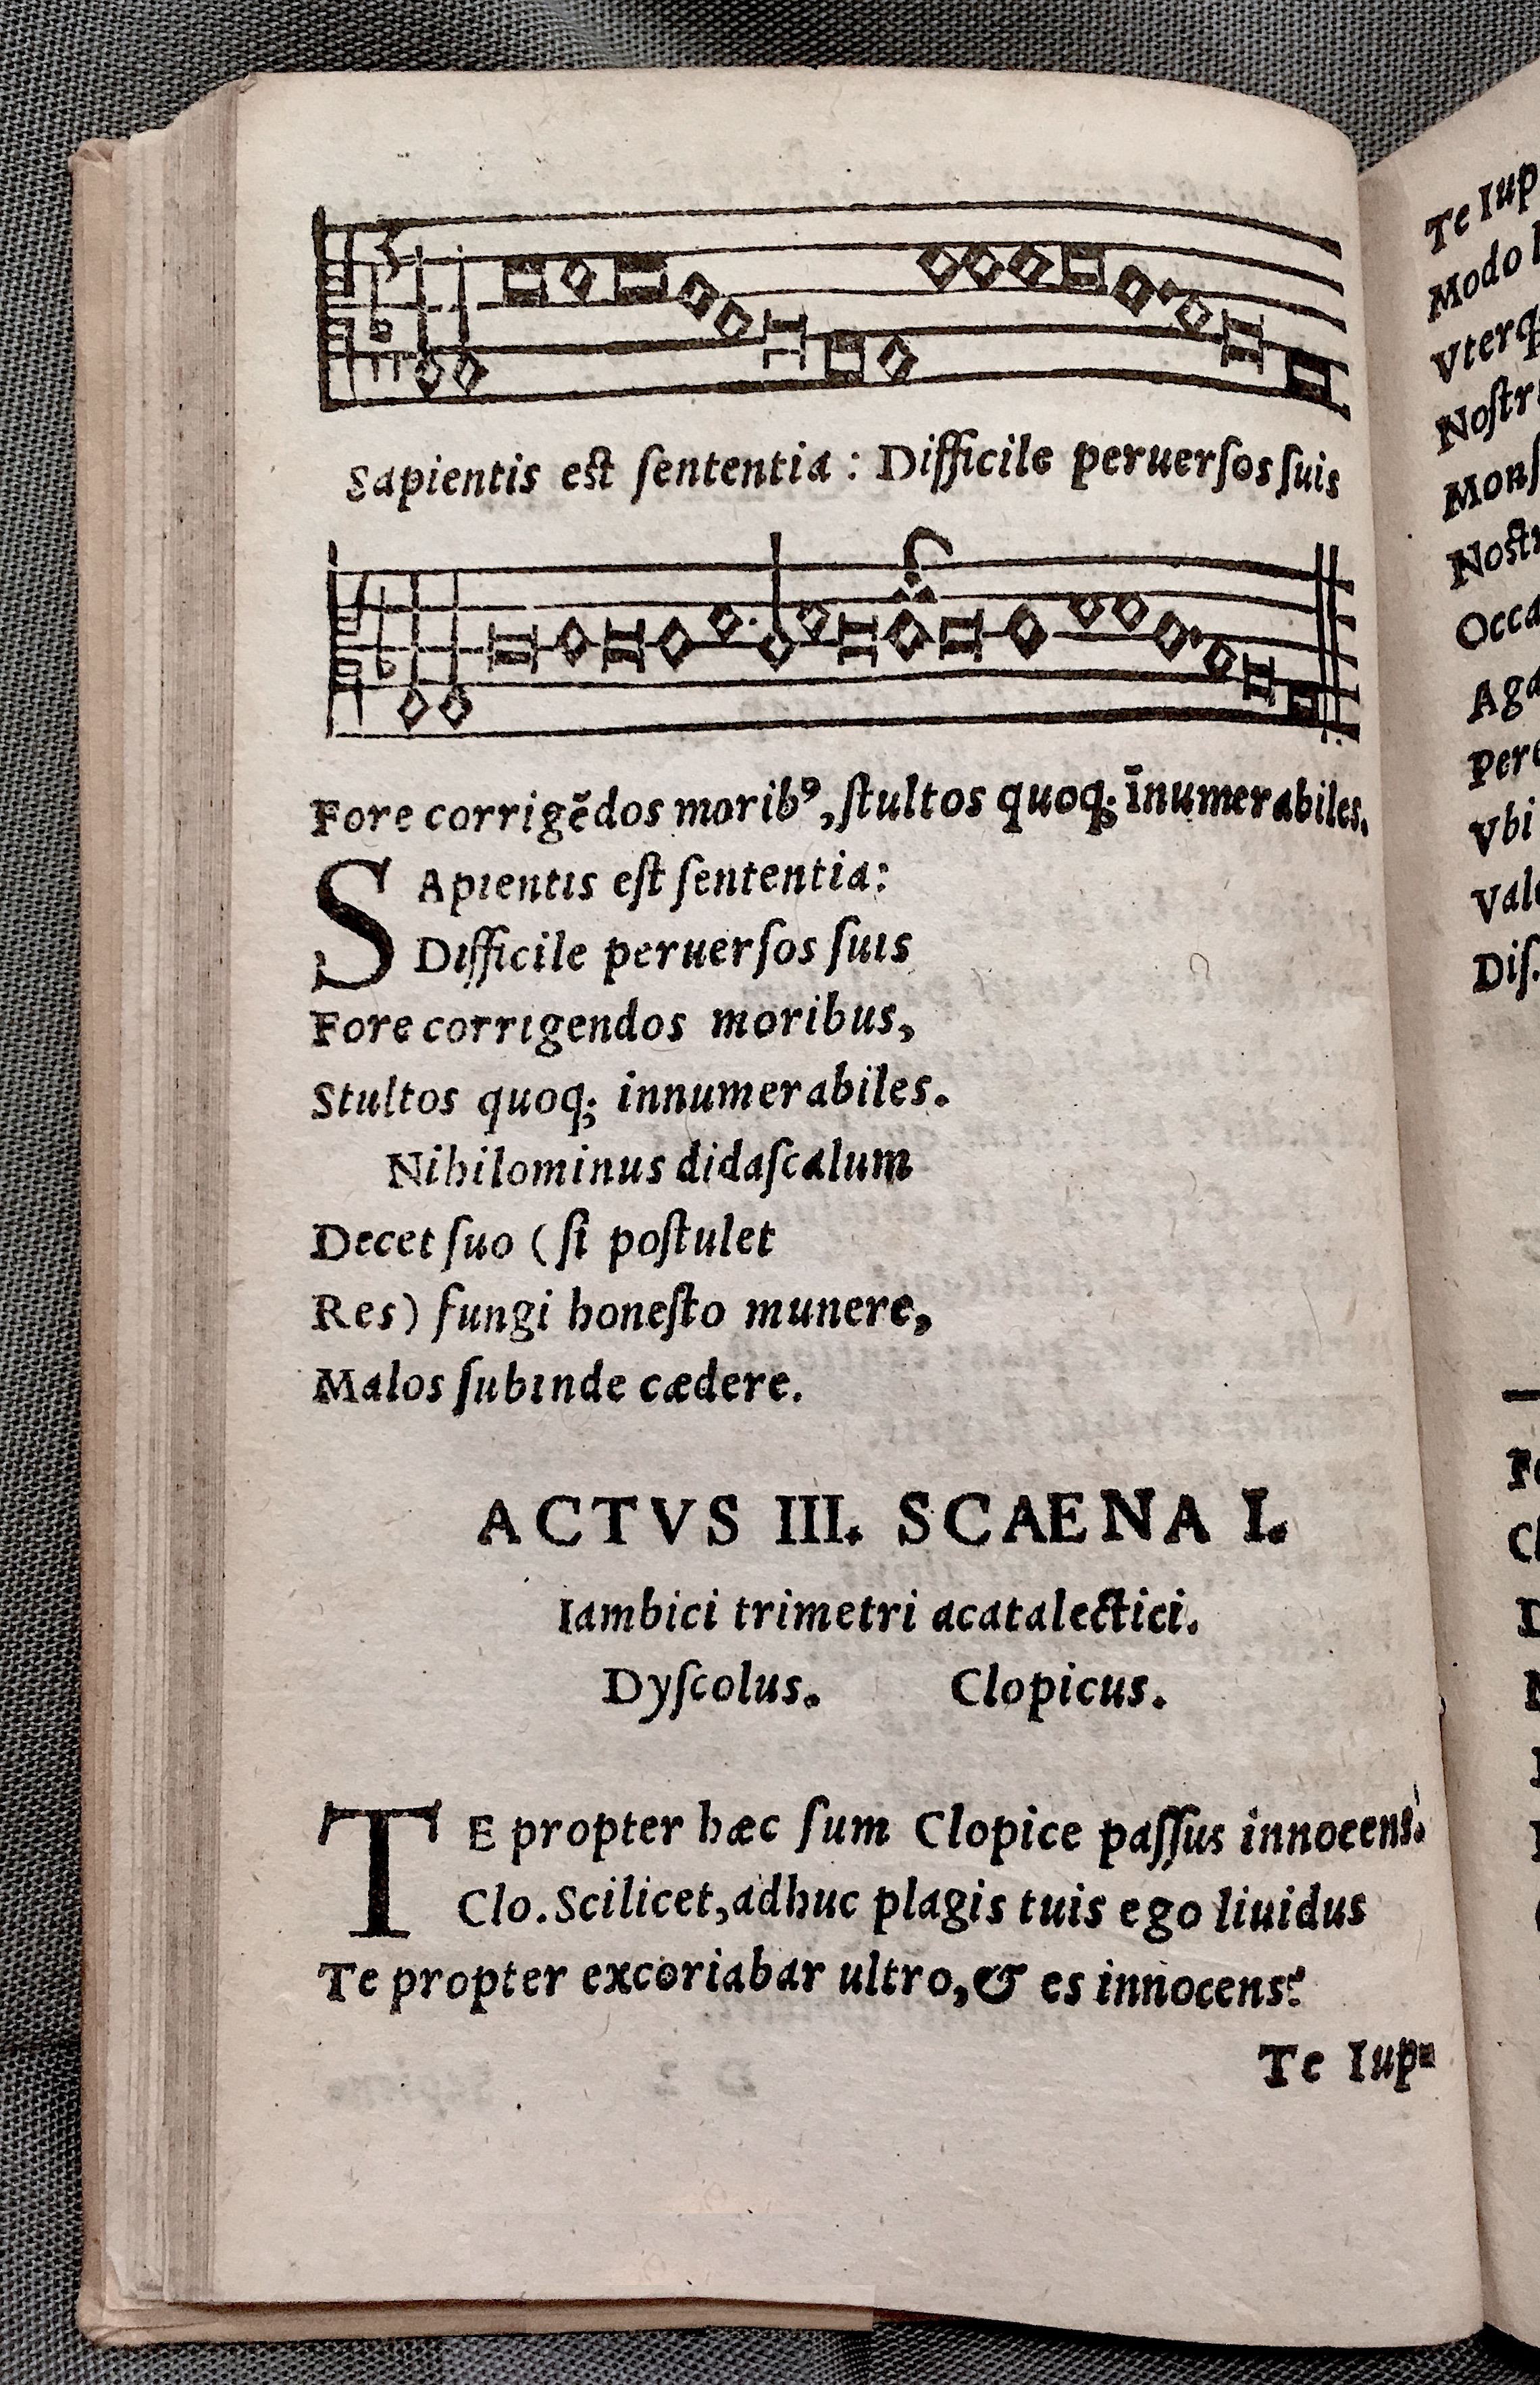 3
Sapientis eſt ſententia : Difficile peruerſos ſuis
Fore corrigẽdos moribꝰ, ſtultos quoq; īnumerabiles.
SApientis eſt ſententia:
Difficile peruerſos ſuis
Fore corrigendos moribus,
Stultos quoq; innumerabiles.
Nihilominus didaſcalum
Decet ſuo ( ſi poſtulet
Res) fungi honeſto munere,
Malos ſubinde cædere.
ACTVS III. SCAENA I.
Iambici trimetri acatalectici.
Dyſcolus. Clopicus.
TE propter hæc ſum Clopice paſſus innocens.
Clo. Scilicet, adhuc plagis tuis ego liuidus
Te propter excoriabar ultro, & es innocens?
Te Iup-
Te Iup
Modo
Vterq
Noſtr
Monſ
Noſtr
Occa
Aga
Pere
Vbi
Vale
Diſ.